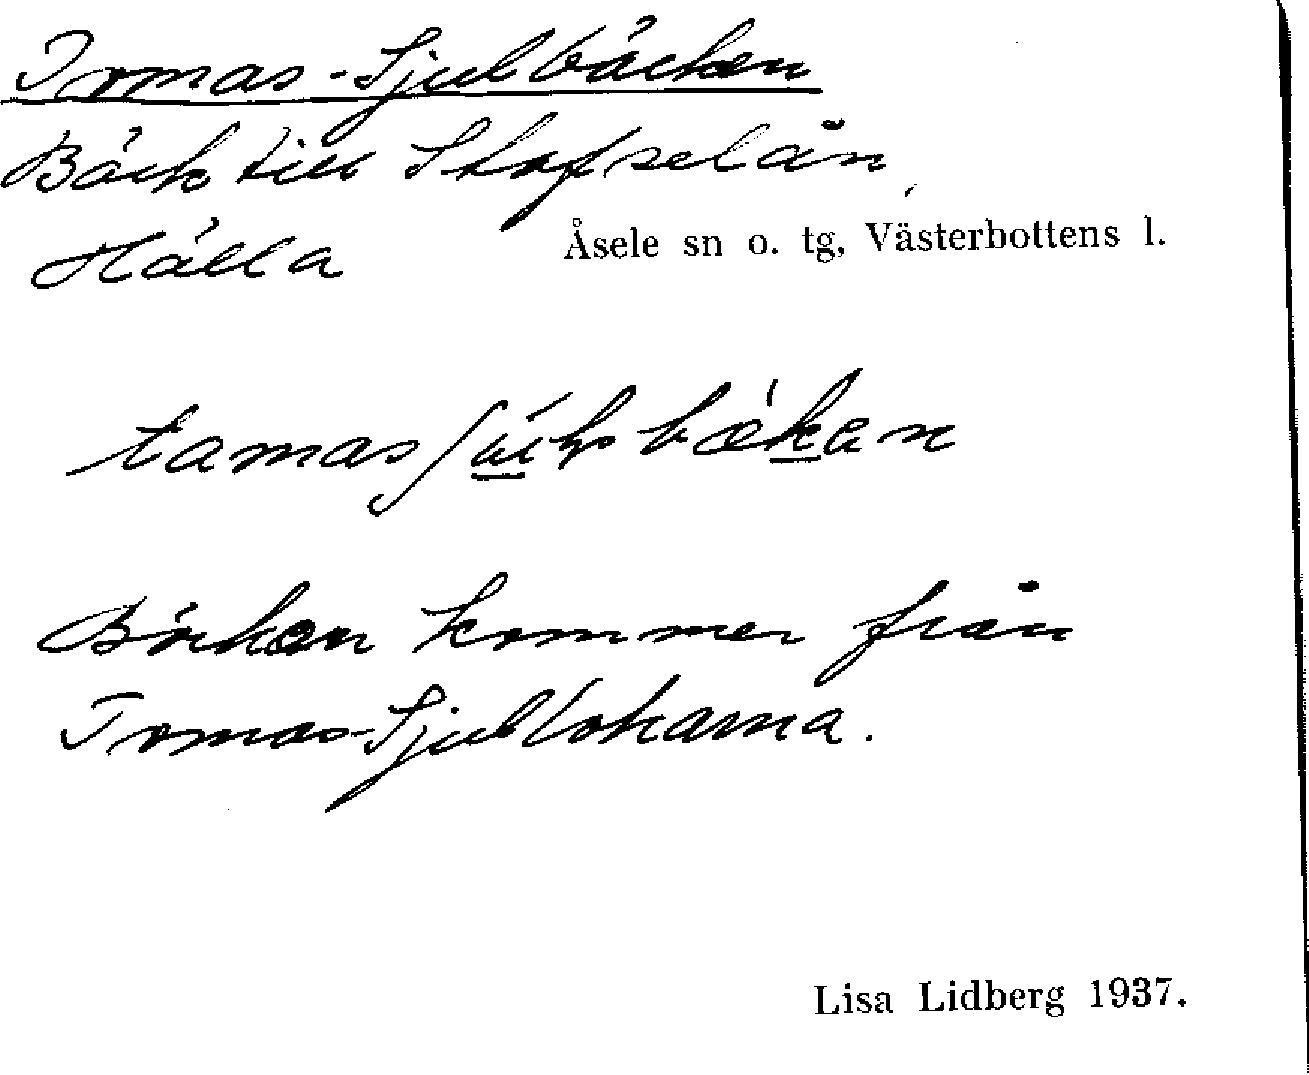 Tomas-Sjulbäcken
Bäck till Stafselån,
Hälla
Åsele sn o. tg, Västerbottens l.
Bäcken kommer från
Tomas-Sjullokarna.
Lisa Lidberg 1937.